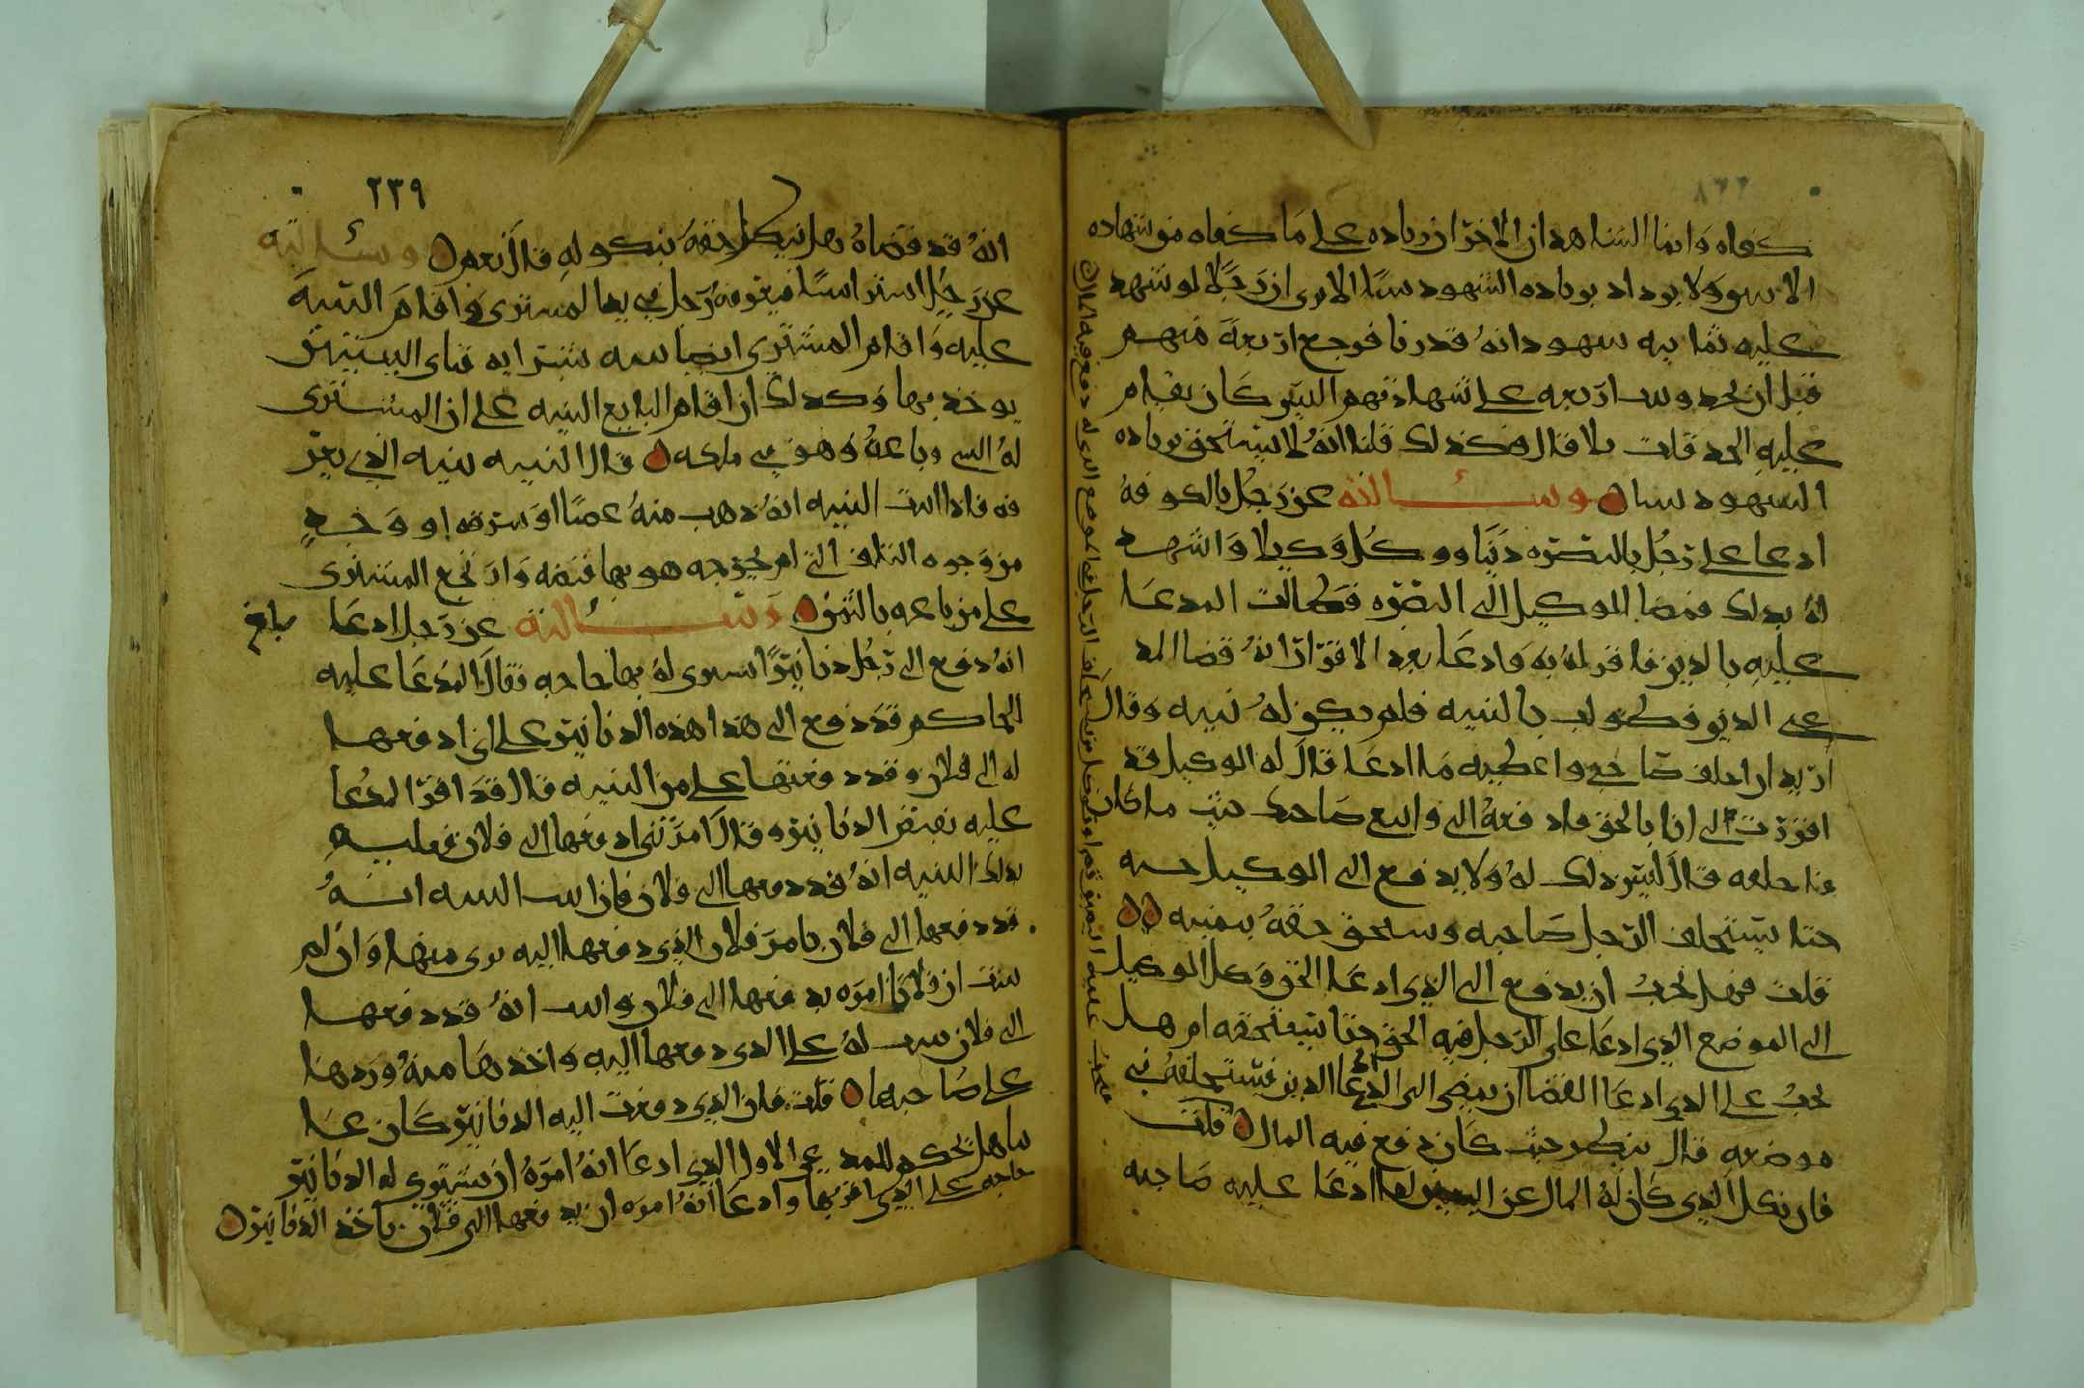 كفاه وانما الشاهدان الاخران زياده على ما كفاه من شهاده
الا ولا يزداد بزياده الشهود شيا الا ترى ان رجلا لو شهد
عليه ثمانيه شهود انه قد زنا فرجع اربعة منهم
قبل ان يحد وثبت اربعه على شهادتهم اليس كان يقام
عليه الحد قلت بلا قال فكذلك قلنا انه لا يستحق بزياده
الشهود شيا ه وسالته عن رجل بالكوفة
ادعا على رجل بالبصره دينا ووكل وكيلا واشهد
له بذلك فمضا الوكيل الى البصره فطالب المدعا
عليه بالدين فاقر له به وادعا بعد الاقرار انه قضا المد
عي الدين فطولب بالبينه فلم يكن له بينه وقال
اريد ان احلف صاحبي واعطيه ما ادعا قال له الوكيل قد
اقررت لي انا بالحق فادفعه الي واتبع صاحبك حيث ما كان
فاحلفه قال ليس ذلك له ولا يدفع الى الوكيل حبه
حتا يستحلف الرجل صاحبه ويستحق حقه بيمينه ه ه
قلت فهل يجب ان يدفع الى الذي ادعا الحق وكل الوكيل
الى الموضع الذي ادعا على الرجل فيه الحق حتا يستحقه ام هل
يجب على الذي ادعا القضا ان يمضي الى الذي ادعا الدين فيستحلفه في
موضعه قال ينظر حيث كان دفع فيه المال ه قلت
فان نكل الذي كان له المال عن اليمين لما ادعا عليه صاحبه
٢٣٩
انه قد قضاه هل يبطل حقه بنكوله قال نعم ه وسالته
عن رجل اشترا شيا فيعرفه رجل في يد المشتري واقام البينة
عليه واقام المشتري ايضا بينه بشرايه فباي البينتين
يوخذ بها وكذلك ان اقام البايع البينه على ان المشترى
له الشي وباعه وهو في ملكه ه قال البينه بينه الذي يعر
فه فاذا اثبت البينه انه ذهب منه غصبا او سرقه او وجه
من وجوه التلف التي لم يخرجه هو بها قبضه ورجع المشترى
على من باعه بالثمن ه وسالته عن رجل ادعا
بلغ
انه دفع الى رجل دنانيرا ليشتري له بها حاجه فقال المدعا عليه
للحاكم قد دفع الى هذا هذه الدنانير على ان ادفعها
له الى فلان وقد دفعتها على من البينه قال قد اقر المدعا
عليه بقبض الدنانير وقال امرتني ادفعها الى فلان فعليه
بذلك البينه انه قد دفعها الى فلان فان اثبت البينه انه
قد دفعها الى فلان بامر فلان الذي دفعها اليه برى منها وان لم
يثبت ان فلانا امره بدفعها الى فلان واثبت انه قد دفعها
الى فلان ثبت له على الذي دفعها اليه واخذها منه وردها
على صاحبها ه قلت فان الذي دفعت اليه الدنانير كان غا
يبا هل يحكم للمدعي الاول الذي ادعا انه امره ان يشتري له الدنانير
حاجه على الذي اقر بها وادعا انه امره ان يدفعها الى فلان ياخذ الدنانير ه